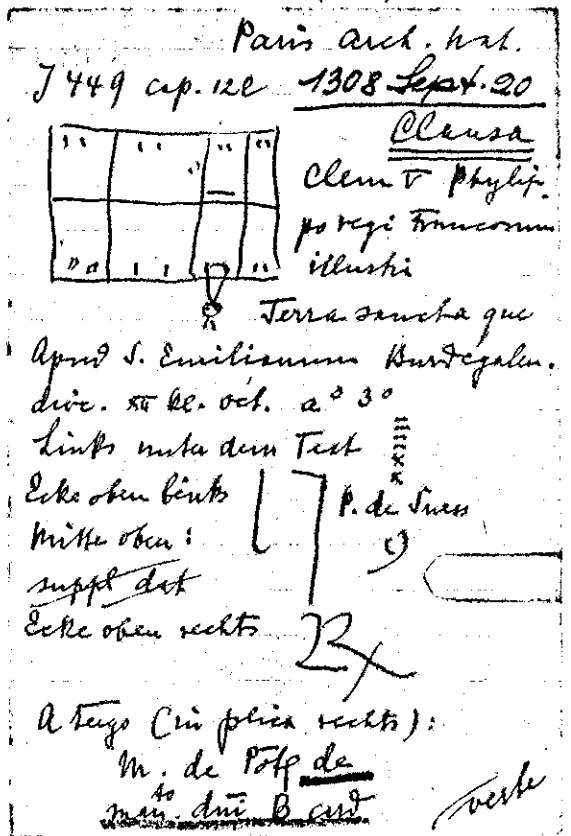 Paris arch. nat.
J 449 cap. 122 1308 Sept. 20
Clausa
Clem V Phylip-
po regi Francorum
illustri
Terra sancta que
Apud S. Emilianum Burdegalen.
dioc. XII kl. oct. a° 3°
Links unter dem Text xxiiii
Ecke oben links P. de
Mitte oben:
suppl dat
Ecke oben rechts Rx
A tergo (in plica rechts):
M. de de
man.to dni B card
verte